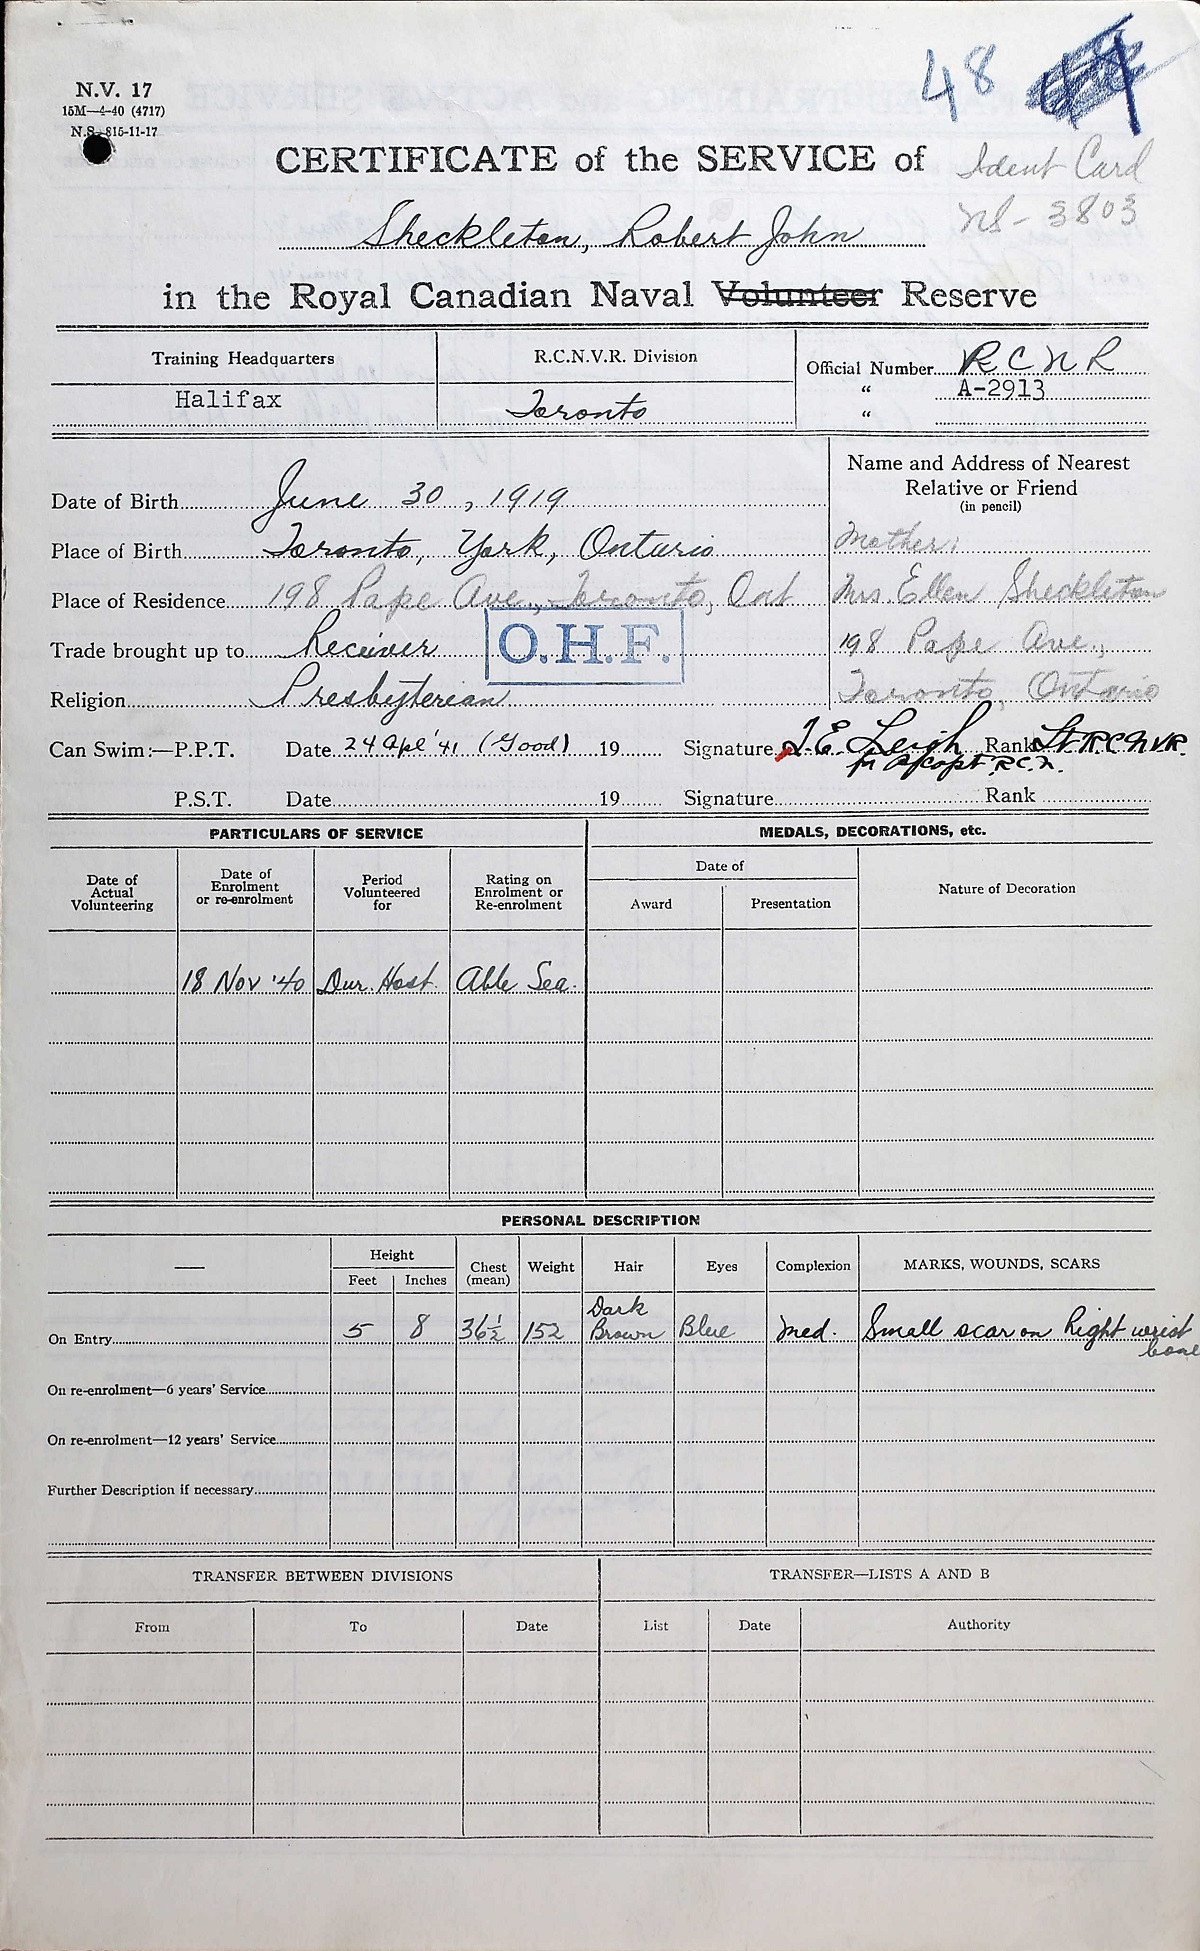 48
N.V. 17
15M—4-40 (4717)
N.S. 815-11-17
CERTIFICATE of the SERVICE of
Ident Card
NS-3803
Sheckleton, Robert John
in the Royal Canadian Naval Volunteer Reserve
Training Headquarters
Halifax
R.C.N.V.R. Division
Toronto
Official Number R C N R
“ A-2913
“
Date of Birth June 30, 1919
Place of Birth Toronto, York, Ontario
Place of Residence 198 Pape Ave., Toronto, Ont
Trade brought up to Receiver
O.H.F.
Religion Presbyterian
Name and Address of Nearest
Relative or Friend
(in pencil)
Mother:
Mrs. Ellen Sheckleton
198 Pape Ave.,
Toronto, Ontario
Can Swim:—P.P.T. Date 24 Apl '41 (Good) 19 Signature J.E. Leigh Rank Lt. R.C.N.V.R.
R.C.N.
P.S.T. Date 19 Signature Rank
PARTICULARS OF SERVICE
MEDALS, DECORATIONS, etc.
Date of
Actual
Volunteering
Date of
Enrolment
or re-enrolment
Period
Volunteered
for
Rating on
Enrolment or
Re-enrolment
Date of
Award
Presentation
Nature of Decoration
18 Nov '40 Dur. Host. Able Sea.
PERSONAL DESCRIPTION
—
Height
Feet Inches
Chest
(mean)
Weight
Hair
Eyes
Complexion
MARKS, WOUNDS, SCARS
On Entry 5 8 36½ 152 Dark Brown Blue Med. Small scar on Right wrist bone
On re-enrolment—6 years' Service
On re-enrolment—12 years' Service
Further Description if necessary
TRANSFER BETWEEN DIVISIONS
From To Date
TRANSFER—LISTS A AND B
List Date Authority